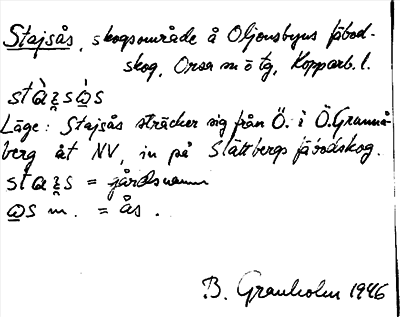 Stajsås, skogsområde å Oljonsbyns fäbod-
skog, Orsa sn ö tg, Kopparb. l.
Läge: Stajsås sträcker sig från Ö. i Ö. Grannå-
berg åt NV, in på Slättbergs fäbodskog.
= gårdsnamn
m. = ås.
B. Granholm 1946